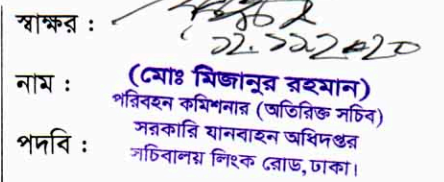 স্বাক্ষর :
১২.১১.২০২০
নাম : (মোঃ মিজানুর রহমান)
পরিবহন কমিশনার (অতিরিক্ত সচিব)
পদবি : সরকারি যানবাহন অধিদপ্তর
সচিবালয় লিংক রোড, ঢাকা।